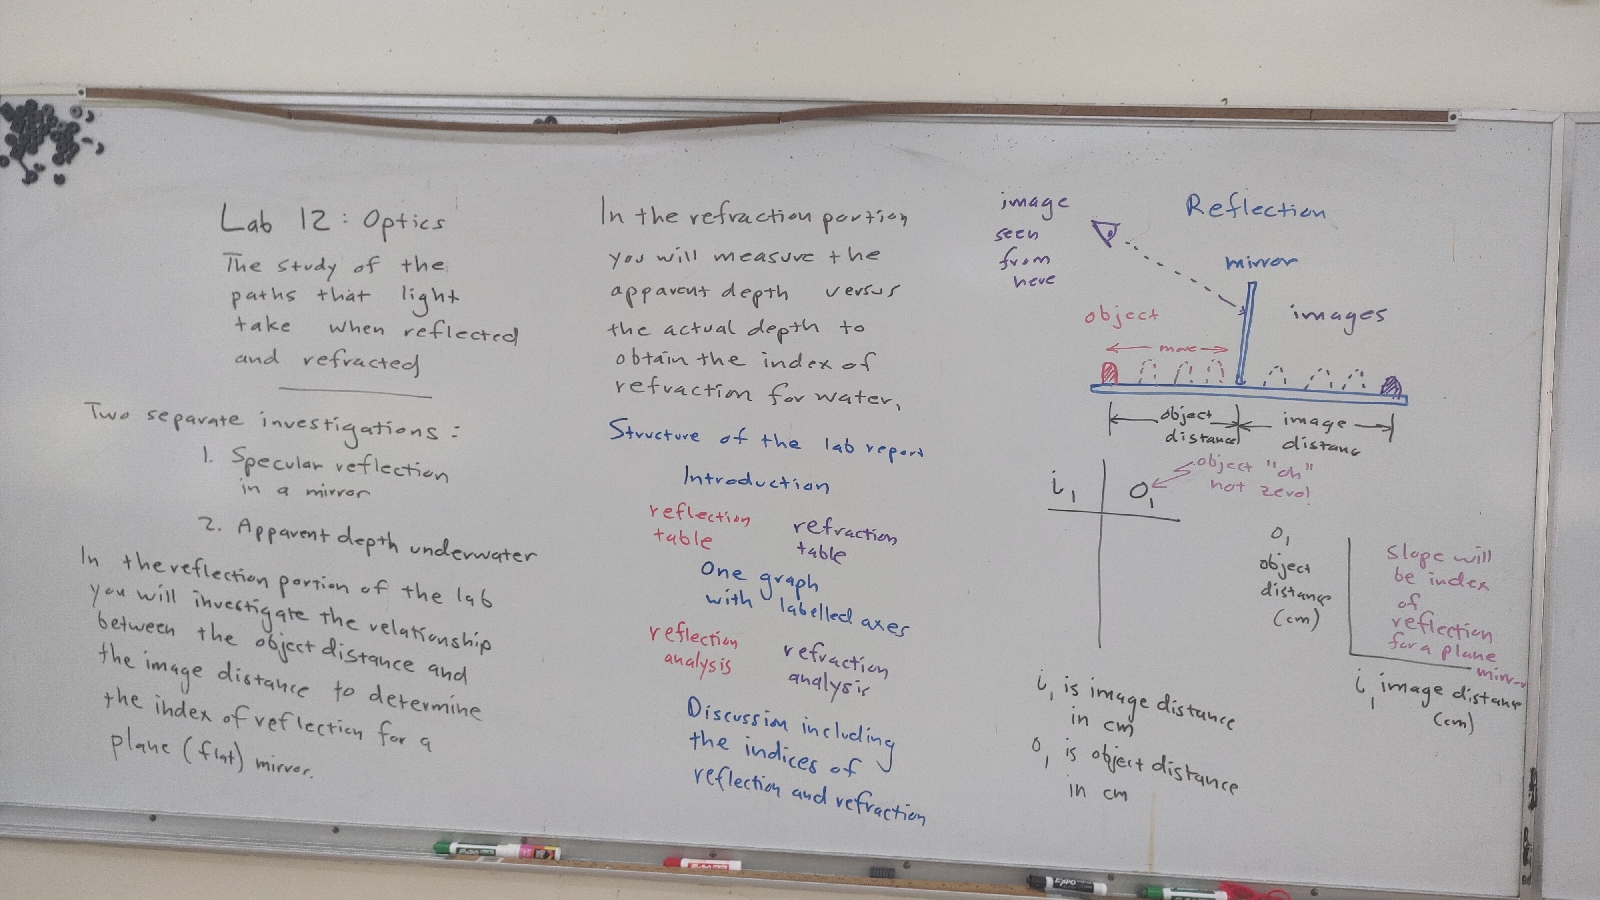 Lab 12: Optics
The study of the
paths that light
take when reflected
and refracted
Two separate investigations:
1. Specular reflection
in a mirror
2. Apparent depth underwater
In the reflection portion of the lab
you will investigate the relationship
between the object distance and
the image distance to determine
the index of reflection for a
plane (flat) mirror.
In the refraction portion
you will measure the
apparent depth versus
the actual depth to
obtain the index of
refraction for water.
Structure of the lab report
Introduction
reflection
table
refraction
table
One graph
with labelled axes
reflection
analysis
refraction
analysis
Discussion including
the indices of
reflection and refraction
image
seen
from
here
Reflection
mirror
object
images
move
object
distance
image
distanc
i₁
O₁
object "oh"
not zero!
O₁
object
distance
(cm)
slope will
be index
of
reflection
for a plane
mirror
i₁ image distance
(cm)
i₁ is image distance
in cm
O₁ is object distance
in cm
EXPO